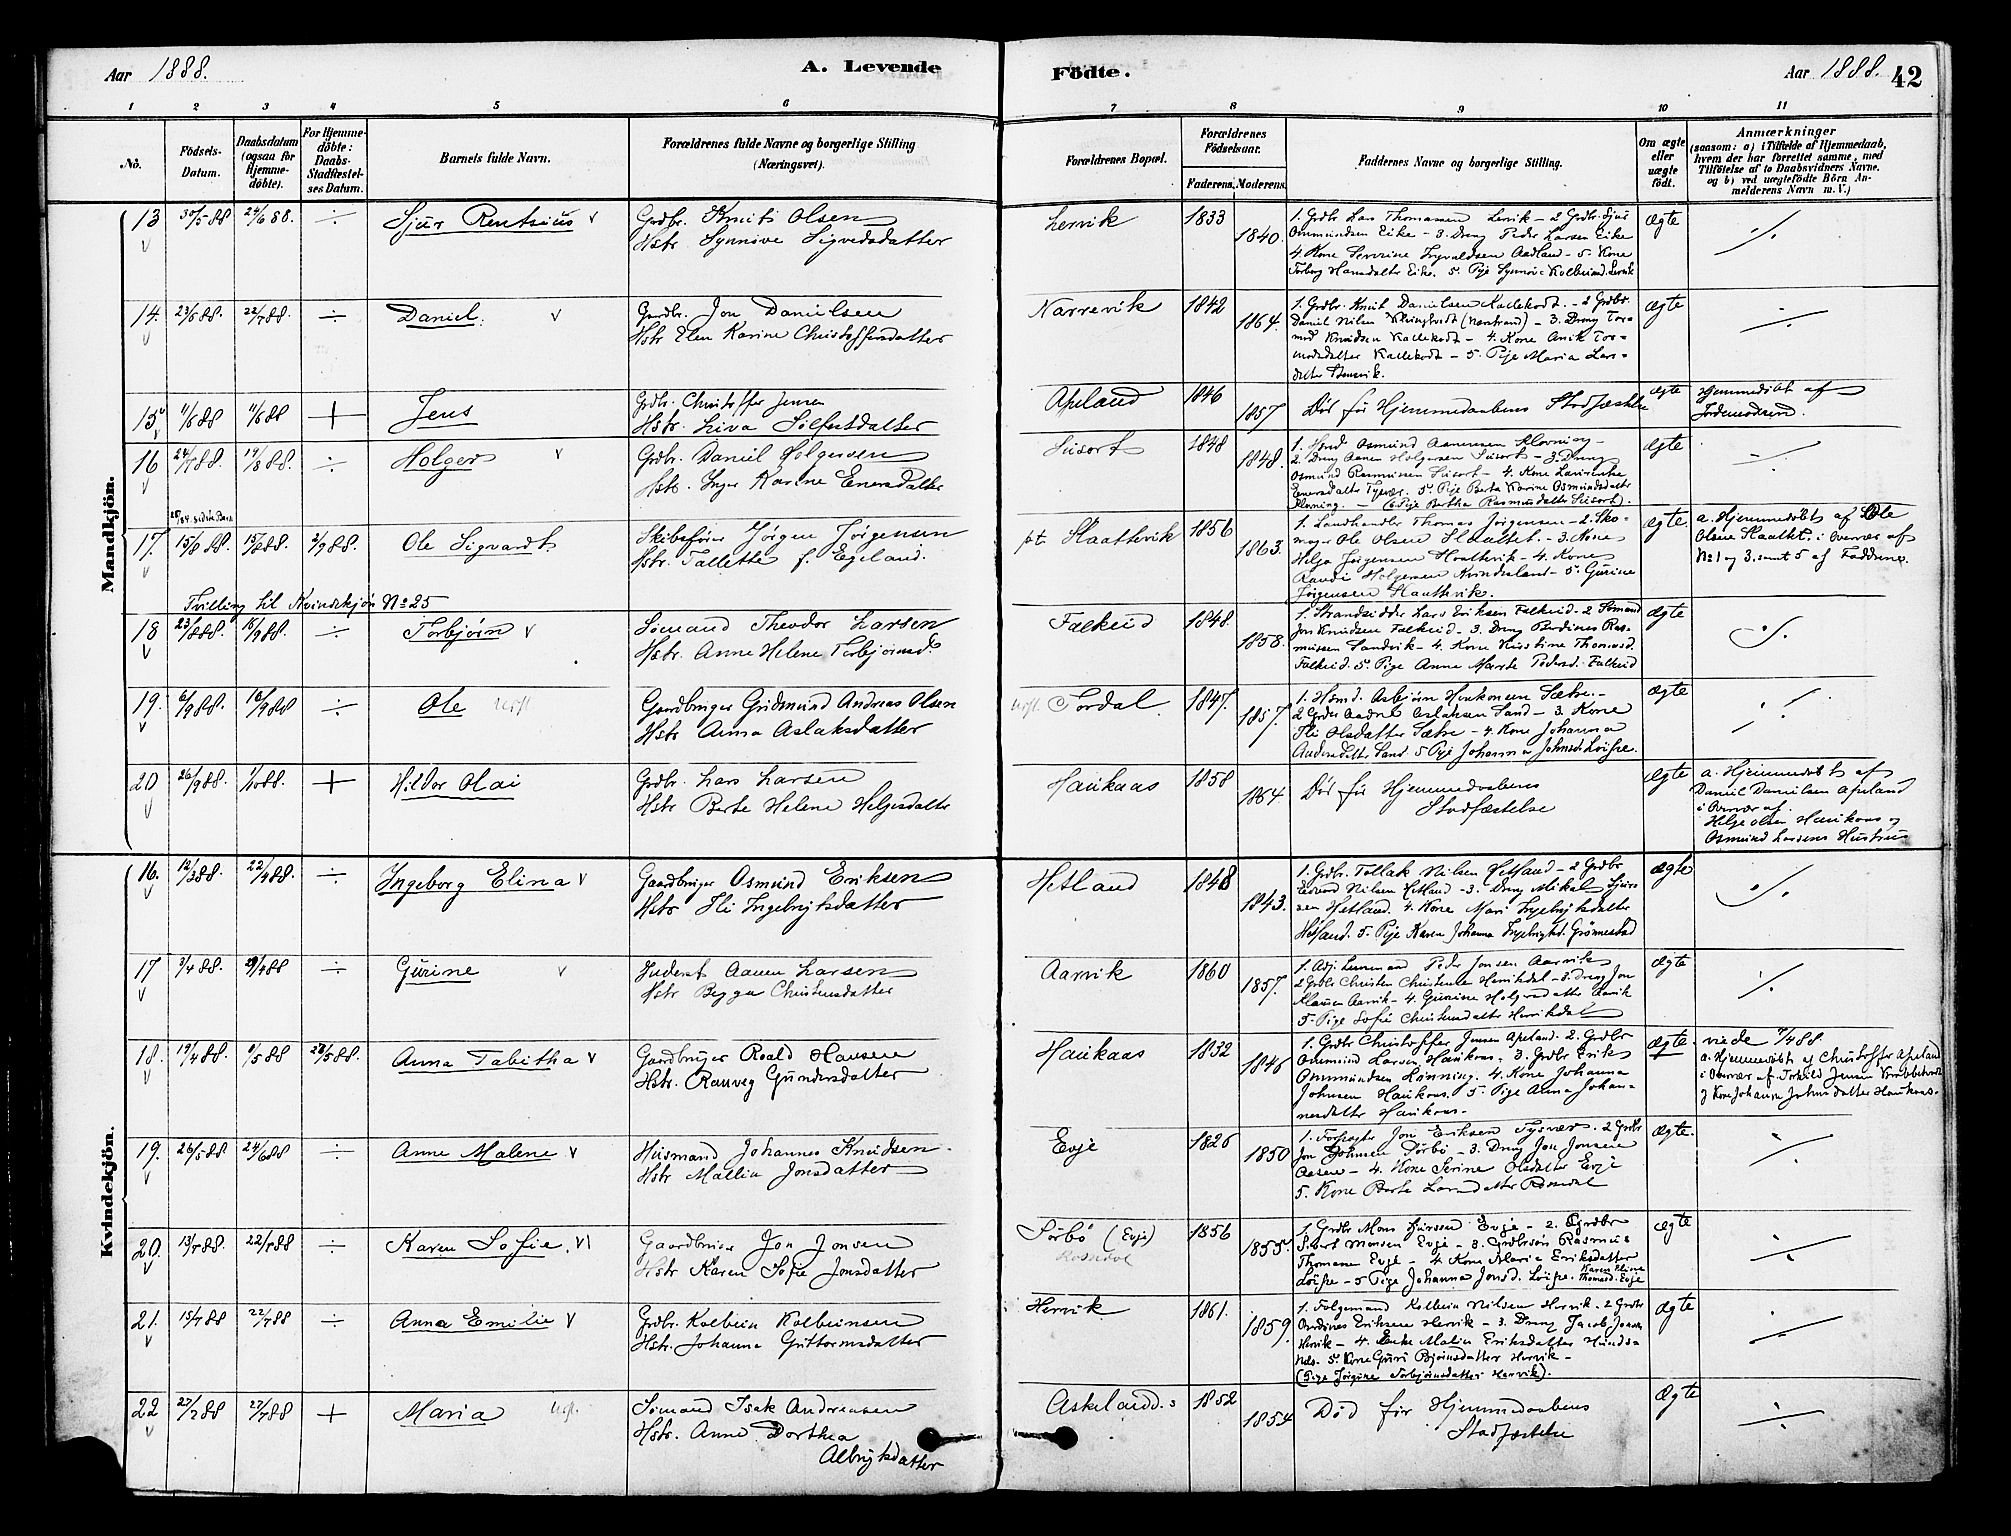 Aar 1888.
A. Levende
Födte.
Aar 1888.
42
1 2 3 4 5 6 7 8 9 10 11
No.
Födsels-Datum.
Daabsdatum (ogsaa for Hjemme-döbte).
For Hjemme-döbte: Daabs-Stadfæstel-ses Datum.
Barnets fulde Navn.
Forældrenes fulde Navne og borgerlige Stilling (Næringsvei).
Forældrenes Bopæl.
Forældrenes Födselsaar.
Faderens. Moderens.
Faddernes Navne og borgerlige Stilling.
Om ægte eller uægte födt.
Anmærkninger
(saasom: a) i Tilfælde af Hjemmedaab, hvem der har forrettet samme, med Tilföielse af to Daabsvidners Navne, og b) ved uægtefödte Börn Anmelderens Navn m. V.)
Mandkjön.
13 30/5 88 24/6 88. ÷ Sjur Rentsius
Grdbr. Knut Olsen
Hstr. Synnöve Sigvedsdatter
Lervik 1833 1840.
1. Grdbr Lars Thomassen Lervik - 2 Grdbr. Sjur
Ommundsen Eike - 3. Dreng Peder Larsen Eike
4. Kone Severine Ingvaldsen Aadland - 5. Kone
ægte
14. 23/5 88. 22/7 88. ÷ Daniel.
Gaardbr. Jon Danielsen
Hstr Elen Karine Christoffersdatter
Narrevik 1842 1864.
1. Grdbr. Knut Danielsen Kallekodt - 2 Grdbr.
mod Knudsen Kallekodt - 4. Kone Anik Tor-
modsdatter Kallekodt - 5. Pige Maria Lars-
ægte
15 11/6 88 11/6 88 + Jens
Grdbr. Christoffer Jensen
Hstr. Liva Sölfestdatter
Apeland 1846 1857.
Död för Hjemmedaabens Stadfæstelse
ægte
Hjemmedöbt af
Jordemoderen.
16 24/7 88. 19/8 88. ÷ Holger
Grdbr. Daniel Holgersen
Hstr. Inger Karine Enersdatter
Susort 1848 1848.
1. Hsmd Osmund Aanensen Klovning -
2. Dreng Aanen Holgersen Susort - 3. Dreng
Osmund Rasmussen Susort - 4. Kone
Enersdatter Tysvær. 5. Pige Berta Karine Osmundsdatter
Klovning. - (6 Pige Bertha Rasmusdatter Susort).
ægte
17. 15/8 88. 15/8 88. 2/9 88. Ole Sigvardt
Skibsförer Jörgen Jörgensen
Hstr. Tallette f. Egeland.
pt. Slaattevik 1856 1863.
1. Landhandler Thomas Jörgensen - 2. Sko-
mager Ole Olsen Slaattet. - 3. Kone
Helga Jörgensen Slaattevik - 4. Kone
Randi Holgersen Kvindesland - 5. Gurine
Jörgensen Slaattevik.
ægte.
a. Hjemmedöbt af Ole
Olsen Slaattet i Overvær af
No 1 og 3. samt 5 af Fadderne.
Tvilling til Kvindekjön No 25
18 23/8 88. 16/9 88. ÷ Torbjörn
Sömand Theodor Larsen
Hstr. Anne Helene Torbjörnsd.
Falkeid 1848. 1858.
1. Strandsidder Lars Eriksen Falkeid - 2 Sömand
Jon Knudsen Falkeid - 3. Dreng Berdines Ras-
mussen Sandvik - 4. Kone Kirstine Thomasd.
Falkeid. 5. Pige Anne Marte Pedersd. Falkeid
ægte
19. 6/9 88. 16/9 88 ÷ Ole
Gaardbruger Gudmund Andreas Olsen
Hstr Anna Aslaksdatter
Sördal. 1847. 1857.
1. Hsmd. Asbjörn Haakonsen Sætre. -
2 Grdbr Aadne Aslaksen Sand - 3. Kone
Ili Olsdatter Sætre - 4. Kone Johanna
ægte
20 26/9 88. 1/10 88. + Hildor Olai
Grdbr. Lars Larsen
Hstr Berte Helene Helgesdatter
Haukaas 1858 1864.
Död för Hjemmedaabens
Stadfæstelse
ægte
a. Hjemmedöbt af
Daniel Danielsen Apeland
i Overvær af
Helge Olsen Haukaas og
Osmund Larsens Hustru
Kvindekjön.
16. 12/3 88. 22/4 88. ÷ Ingeborg Elina
Gaardbruger Osmund Eriksen
Hstr Ili Ingebrigtsdatter
Hetland 1848 1843.
1. Grdbr. Tollak Nilsen Hetland - 2 Grdbr
Eivind Nilsen Hetland - 3. Dreng Mikal Sjur-
sen Hetland. 4. Kone Mari Ingebrigtsdatter
Hetland. 5. Pige Karen Johanna Ingebrigtsd. Grönnestad
ægte
17 3/4 88. 29/4 88 ÷ Gurine
Inderst Aanen Larsen
Hstr Begga Christensdatter
Aarvik 1860 1857.
1. Adj. Lensmand Peder Jonsen Aarvik
2 Grdbr Christen Christensen Hervikdal - 3. Dreng Jon
Klausen Aarvik - 4. Gurine Holgersdatter Aarvik
5. Pige Sofie Christensdatter Hervikdal
ægte
18. 19/4 88. 1/5 88 28/5 88. Anna Tabitha
Gaardbruger Roald Hansen
Hstr. Ranveg Gundersdatter
Haukaas 1832 1846
1. Grdbr Christoffer Jensen Apeland. 2. Grdbr
Ommund Larsen Haukaas. 3. Grdbr Erik
Ommundsen Hönning. 4. Kone Johanna
Johnsen Haukaas. 5. Pige Anna Johan-
nesdatter Haukaas.
ægte
viede 7/4 88.
a. Hjemmedöbt af Christoffer Apeland
i Overvær af Torkild Jensen
og Kone Johanna Johnsdatter Haukaas.
19. 26/5 88 24/6 88 ÷ Anne Malene
Husmand Johannes Knudsen
Hstr Mallin Jonsdatter
Evje 1826 1850
1. Forpagter Jon Eriksen Tysvær. 2 Grdbr
Jon Johnsen Sörbö - 3. Dreng Jon Jonsen
Aasen - 4. Kone Serine Olsdatter Evje
5. Kone Berte Larsdatter Rossedal
ægte.
20. 13/7 88. 22/7 88 ÷ Karen Sofie.
Gaardbruger Jon Jonsen
Hstr Karen Sofie Jonsdatter
Sörbö (Evje)
Rossedal
1856 1855.
1. Grdbr Mons Sjursen Evje - 2. Grdbr
Sjurt Monsen Evje - 3. Grdbrsön Rasmus
Thomassen Evje - 4 Kone Marie Eriksdatter
ægte
21. 15/7 88 22/7 88 ÷ Anna Emilie
Grdbr. Kolbein Kolbeinsen
Hstr. Johanna Guttormsdatter
Hervik 1861. 1859.
1. Folgemand Kolbein Nilsen Hervik. 2 Grdbr
Berdines Eriksen Hervik - 3. Dreng Jacob Jonsen
Hervik - 4. Enke Malin Eriksdatter Hunds-
nes. 5. Kone Guri Björnsdatter Hervik -
(Pige Jörgine Torbjörnsdatter Hervik).
ægte
22 27/7 88 27/7 88 + Maria
Sömand Isak Andreassen
Hstr. Anne Dorthea
Albrigtsdatter
Askeland. 1852 1854
Död för Hjemmedaabens
Stadfæstelse
Ægte